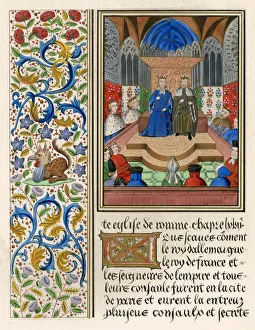 te eglise de romme chapr̃e lviiȷ
Que Jaques c̃oment
le roy dallemaigne
le roy de france et
les seigneurs de lempire et tous
leurs consaulx furent en la cite
de paris et eurent la entreulx
pluseurs consaulx et secrete